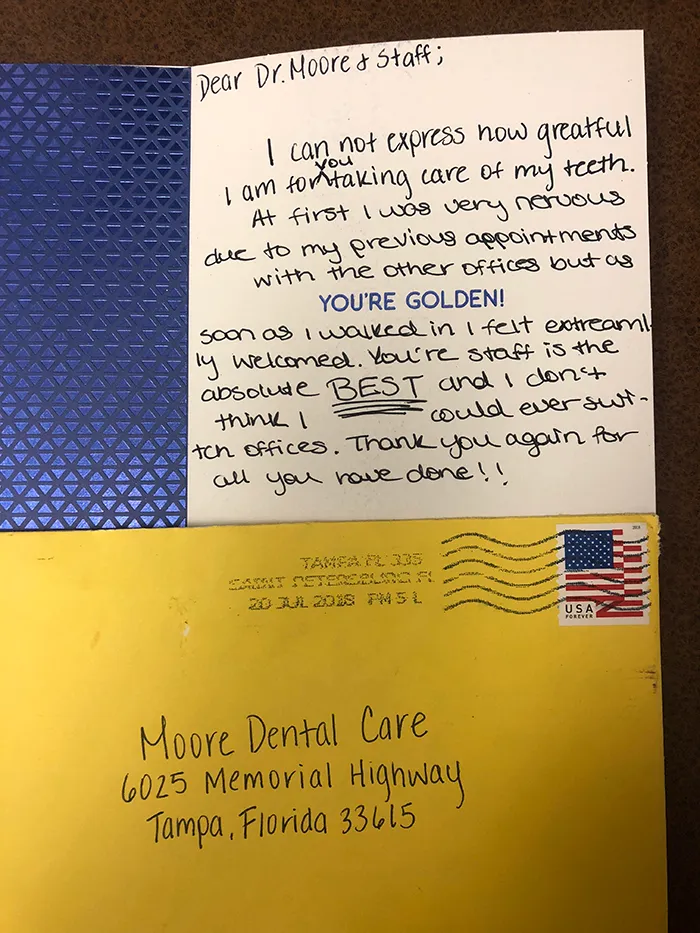 Dear Dr. Moore & Staff;
I can not express how greatful
I am for you taking care of my teeth.
At first I was very nervous
due to my previous appointments
with the other offices but as
YOU'RE GOLDEN!
soon as I walked in I felt extreaml-
ly welcomed. You're staff is the
absolute BEST and I don't
think I could ever swi-
tch offices. Thank you again for
all you have done!!
TAMPA FL 335
SAINT PETERSBURG FL
20 JUL 2018 PM 5 L
2018
USA
FOREVER
Moore Dental Care
6025 Memorial Highway
Tampa, Florida 33615